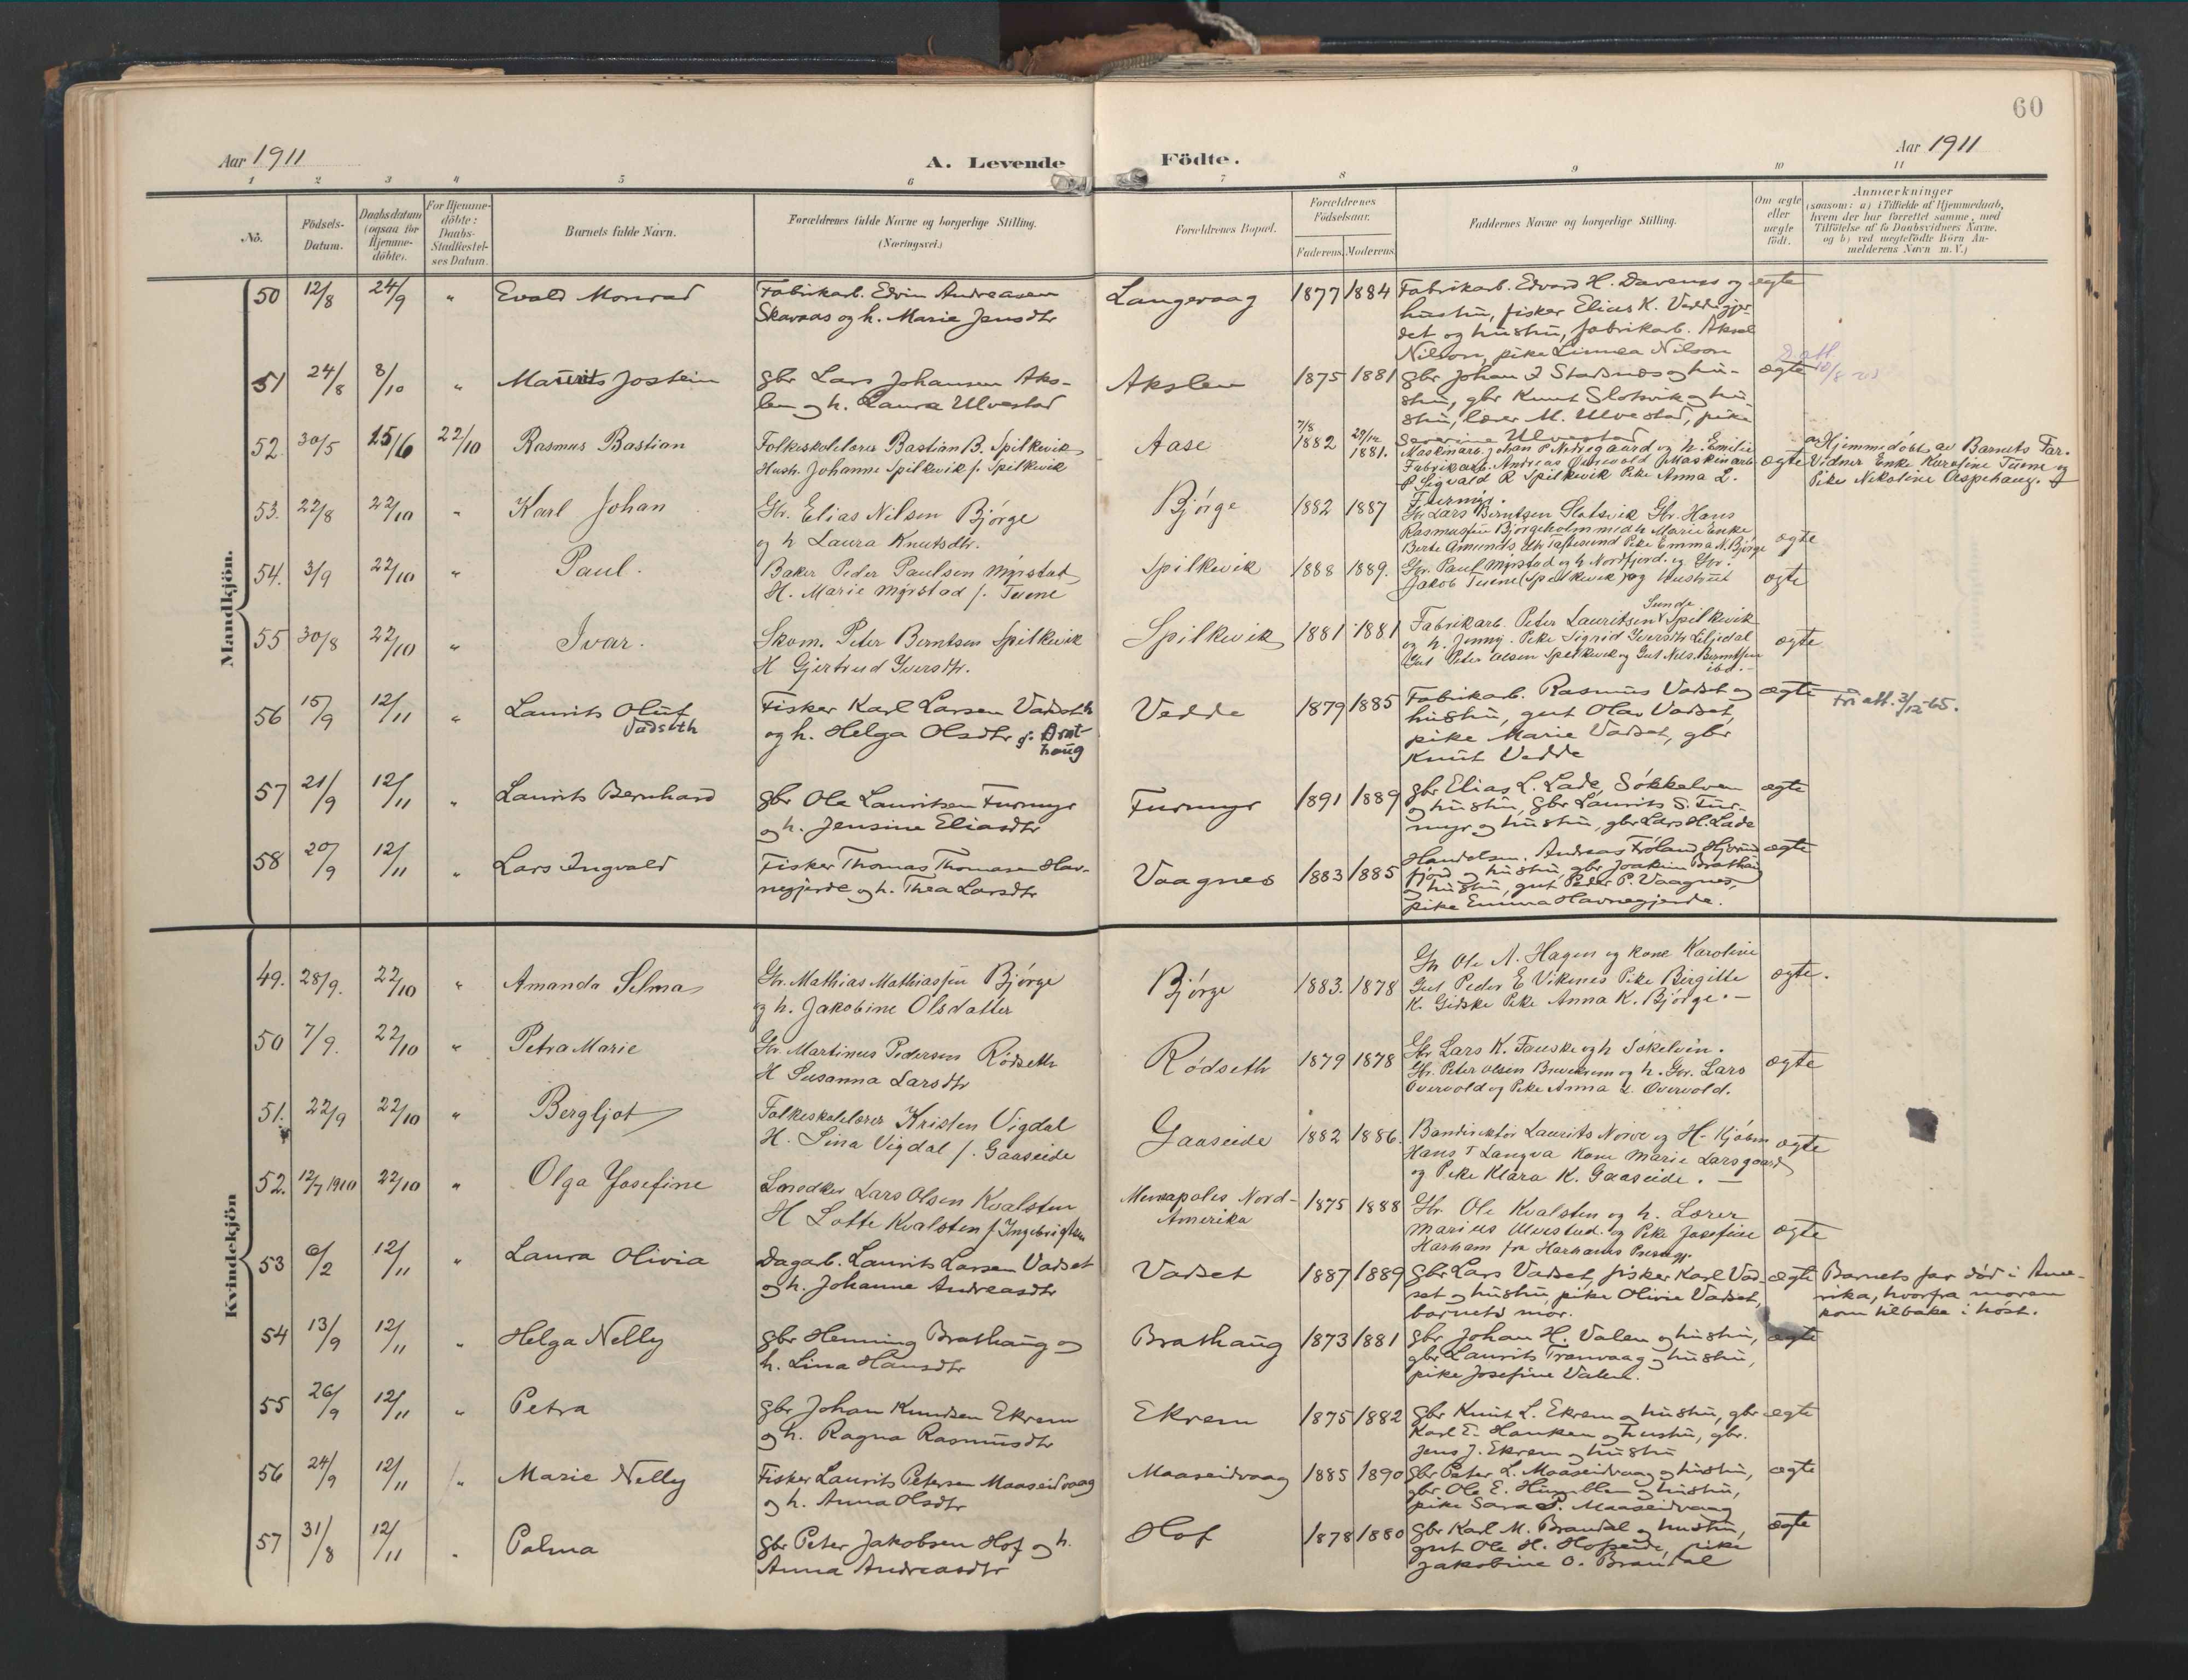 60
Aar 1911
A. Levende Födte.
Aar 1911
1 2 3 4 5 6 7 8 9 10 11
No.
Födsels-Datum.
Daabsdatum (ogsaa for Hjemme-döbte).
For Hjemme-döbte: Daabs-Stadfæstel-ses Datum.
Barnets fulde Navn.
Forældrenes fulde Navne og borgerlige Stilling.
(Næringsvei.)
Forældrenes Bopæl.
Forældrenes Födselsaar.
Faderens. Moderens.
Faddernes Navne og borgerlige Stilling.
Om ægte eller uægte födt.
Anmærkninger
(saasom: a) i Tilfælde af Hjemmedaab,
hvem der har forrettet samme, med
Tilföielse af to Daabsvidners Navne.
og b) ved uægtefödte Börn An-
melderens Navn m. V.)
Mandkjön.
50 12/8 24/9 " Evald Monrad
Fabrikarb. Edvin Andreasen
Skavaas og h. Marie Jensdtr
Langevaag 1877 1884
Fabrikarb. Edvard H. Davenes og
hustru, fisker Elias K. Veddegjer-
det og hustru, fabrikarb. Aksel
Nilson, pike Linnea Nilson
ægte
51 24/8 8/10 " Maurits Jostein
gbr Lars Johansen Aks-
len og h. Laura Ulvestad
Akslen 1875 1881
gbr Johan I Stadsnes og hu-
stru, gbr Knut Slotsvik og hu-
stru, lærer M. Ulvestad, pike
Severine Ulvestad
ægte
52. 30/5 15/6 22/10 Rasmus Bastian
Folkeskolelærer Bastian B. Spilkevik
Hush. Johanne Spilkevik f. Spilkevik
Aase 7/8 1882 29/12 1881.
Maskinarb. Johan P Nedregaard og h. Emilie
Fabrikarb. Andreas Maskinarb
P Sigvald R Spilkevik Pike Anna L.
Furmyr.
ægte
a Hjemmedøbt av Barnets Far.
Vidner Enke Karoline Tuene og
Pike Nikoline Aspehaug.
53. 22/8 22/10 " Karl Johan
Gbr. Elias Nilsen Bjørge
og h Laura Knutsdtr.
Bjørge 1882 1887
Gbr Lars Berntsen Slotsvik Gbr. Hans
Rasmussen Bjørgeholm med h Marie Enke
Berte Amunds dtr Taftesund Pike Emma N. Bjørge
ægte
54. 3/9 22/10 " Paul.
Baker Peder Paulsen Myrstad
H. Marie Myrstad f. Tuene
Spilkevik 1888 1889.
Gbr. Paul Myrstad og h Nordfjord. og Gbr.
Jakob Tuene (Spilkevik) og Hustru
ægte
55 30/8 22/10 " Ivar.
Skom. Peter Berntsen Spilkevik
H Gjertrud Iversdtr.
Spilkevik 1881 1881
Sunde
Fabrikarb. Peter Lauritsen Spilkevik
og h. Jenny. Pike Sigrid Iversdtr Liljedal
Gut Peter Olsen Spilkevik og Gut Nils Berntsen
ibd. -
ægte
56 15/9 12/11 " Laurits Oluf
Vadseth
Fisker Karl Larsen Vadseth
og h. Helga Olsdtr f. Brat-
haug
Vedde 1879 1885
Fabrikarb. Rasmus Vadset og
hustru, gut Olav Vadset,
pike Marie Vadset, gbr
Knut Vedde
ægte
Fri att. 3/12-65.
57 21/9 12/11 " Laurits Bernhard
gbr Ole Lauritsen Furmyr
og h. Jensine Eliasdtr
Furmyr 1891 1889
gbr Elias L. Lade, Søkkelven
og hustru, gbr Laurits S. Fur-
myr og hustru, gbr Lars H. Lade
ægte
58 20/9 12/11 " Lars Ingvald
Fisker Thomas Thomasen Hav-
negjerde og h. Thea Larsdtr
Vaagnes 1883 1885
Handelsm. Andreas Frøland Hjørund
fjord og hustru, gbr Joakim Brathaug
og hustru, gut Peder P. Vaagnes,
pike Emma Havnegjerde.
ægte
Kvindekjön
49. 28/9. 22/10 " Amanda Selma
Gbr. Mathias Mathiassen Bjørge
og h. Jakobine Olsdatter
Bjørge 1883. 1878
Gbr Ole A. Hagen og kone Karoline
Gut Peder E Vikenes Pike Birgitte
K. Gidske Pike Anna K. Bjørge. -
ægte.
50 7/9. 22/10 " Petra Marie
Gbr. Martinus Pedersen Rødseth
H Susanna Larsdtr
Rødseth 1879 1878
Gbr Lars K. Fauske og h Søkelven.
Gbr. Peter Olsen Brevikrem og h. Gbr. Lars
Overvold og Pike Anna L. Overvold.
ægte
51. 22/9 22/10 " Bergljot
Folkeskolelærer Kristen Vigdal
H. Lina Vigdal f. Gaaseide
Gaaseide 1882 1886.
Bandirektør Laurits Norve og H- Kjøbm
Hans T Langva Kone Marie Larsgaard
og Pike Klara K. Gaaseide. -
ægte
52. 12/7 1910 22/10 " Olga Josefine
Snedker Lars Olsen Kvalsten
H Lotte Kvalsten f. Ingebrigtsen
Menapoles Nord-
Amerika
1875 1888
Gbr. Ole Kvalsten og h. Lærer
Marius Ulvestad. og Pike Josefine
Harham fra Harhams Prestgj.
ægte
53 6/2 12/11 " Laura Olivia
Dagarb. Laurits Larsen Vadset
og h. Johanne Andreasdtr
Vadset 1887 1889
gbr Lars Vadset, fisker Karl Vad-
set og hustru, pike Olivie Vadset,
barnets mor.
ægte
Barnets far død i Ame-
rika, hvorfra moren
kom tilbake i høst.
54 13/9 12/11 " Helga Nelly
gbr Henning Brathaug og
h. Lina Hansdtr
Brathaug 1873 1881
gbr Johan H. Valen og hustru,
gbr Laurits Tranvaag og hustru,
pike Josefine Valen.
ægte
55 26/9 12/11 " Petra
gbr Johan Knudsen Ekrem
og h. Ragna Rasmusdtr
Ekrem 1875 1882
gbr Knut L. Ekrem og hustru, gbr
Karl E. Hanken og hustru, gbr.
Jens J. Ekrem og hustru
ægte
56 24/9 12/11 " Marie Nelly
Fisker Laurits Petersen Maaseidvaag
og h. Anna Olsdtr
Maaseidvaag 1885 1890
gbr Peter L. Maaseidvaag og hustru,
gbr Ole E. Humblen og hustru,
pike Sara P. Maaseidvaag
ægte
57 31/8 12/11 " Palma
gbr Peter Jakobsen Hof og h.
Anna Andreasdtr
Hof 1878 1880
gbr Karl M. Brandal og hustru,
gut Ole H. Hofseide, pike
Jakobine O. Brandal
ægte